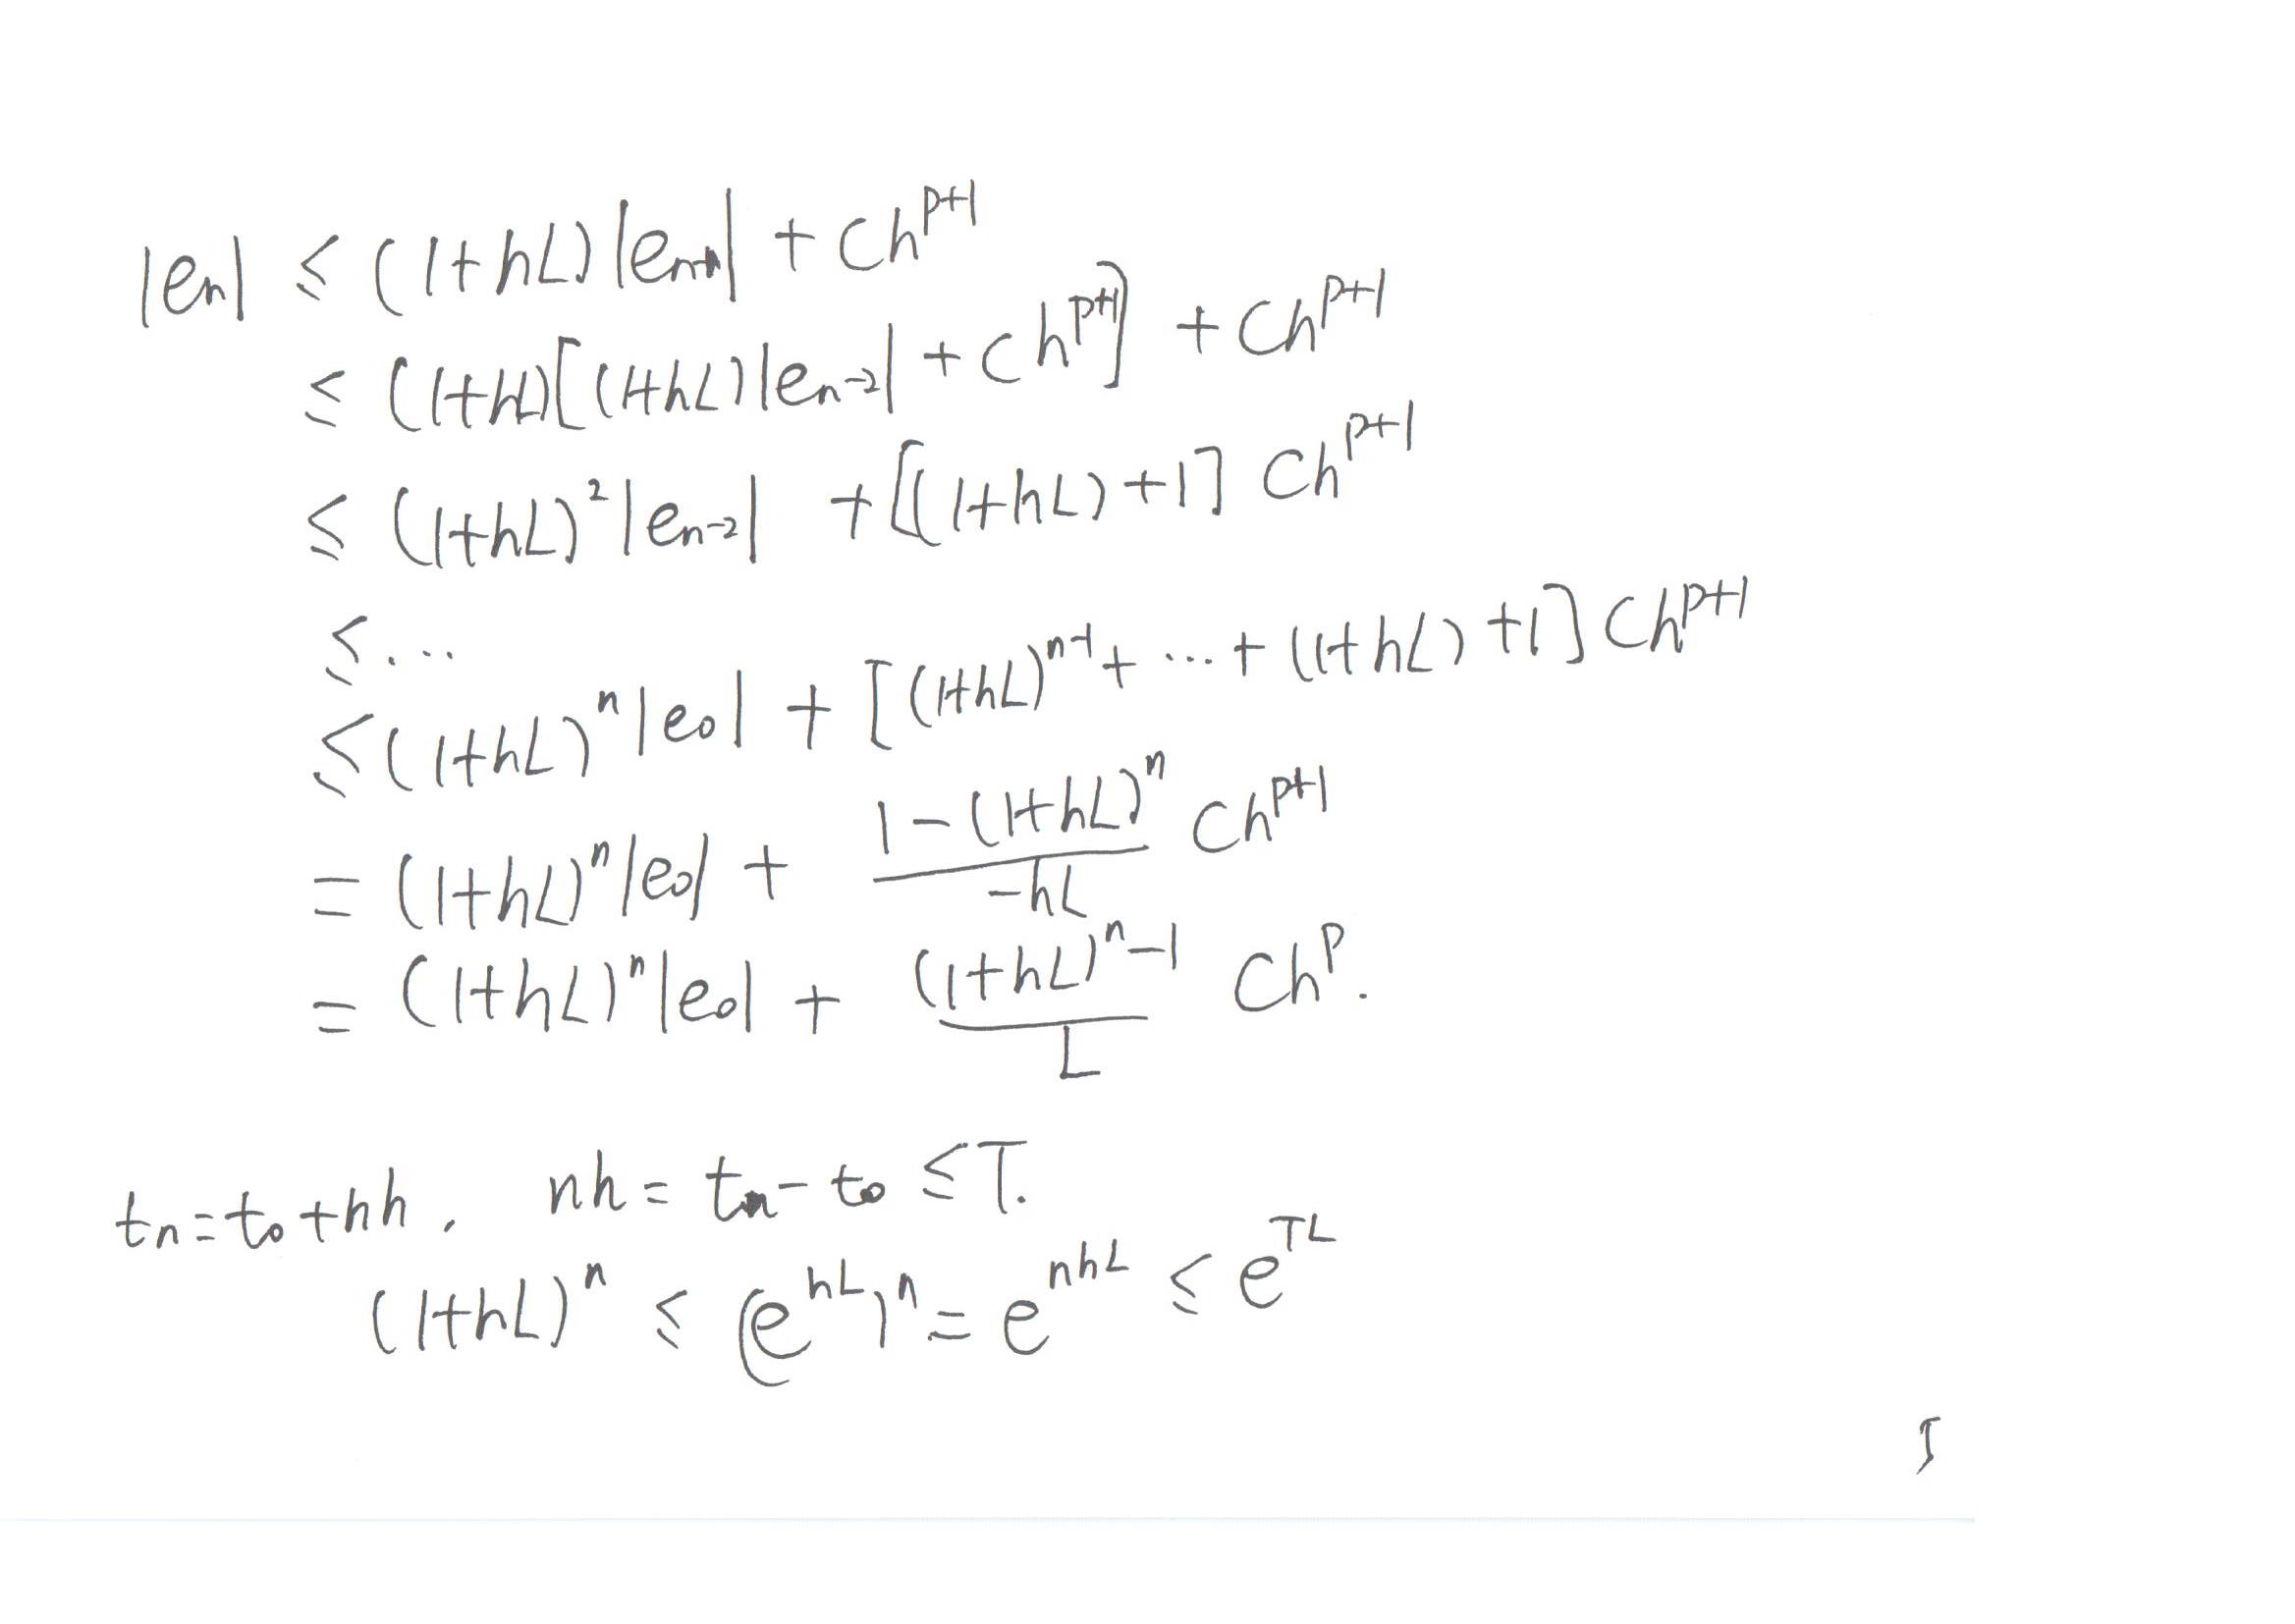 |e_n| ≤ (1+hL)|e_{n-1}| + Ch^{p+1}
≤ (1+hL)[(1+hL)|e_{n-2}| + Ch^{p+1}] + Ch^{p+1}
≤ (1+hL)^2|e_{n-2}| + [(1+hL)+1] Ch^{p+1}
≤ ...
≤ (1+hL)^n|e_0| + [(1+hL)^{n-1} + ... + (1+hL)+1] Ch^{p+1}
= (1+hL)^n|e_0| + \frac{1-(1+hL)^n}{-hL} Ch^{p+1}
= (1+hL)^n|e_0| + \frac{(1+hL)^n-1}{L} Ch^p.
t_n = t_0 + nh, nh = t_n - t_0 ≤ T.
(1+hL)^n ≤ (e^{hL})^n = e^{nhL} ≤ e^{TL}
5